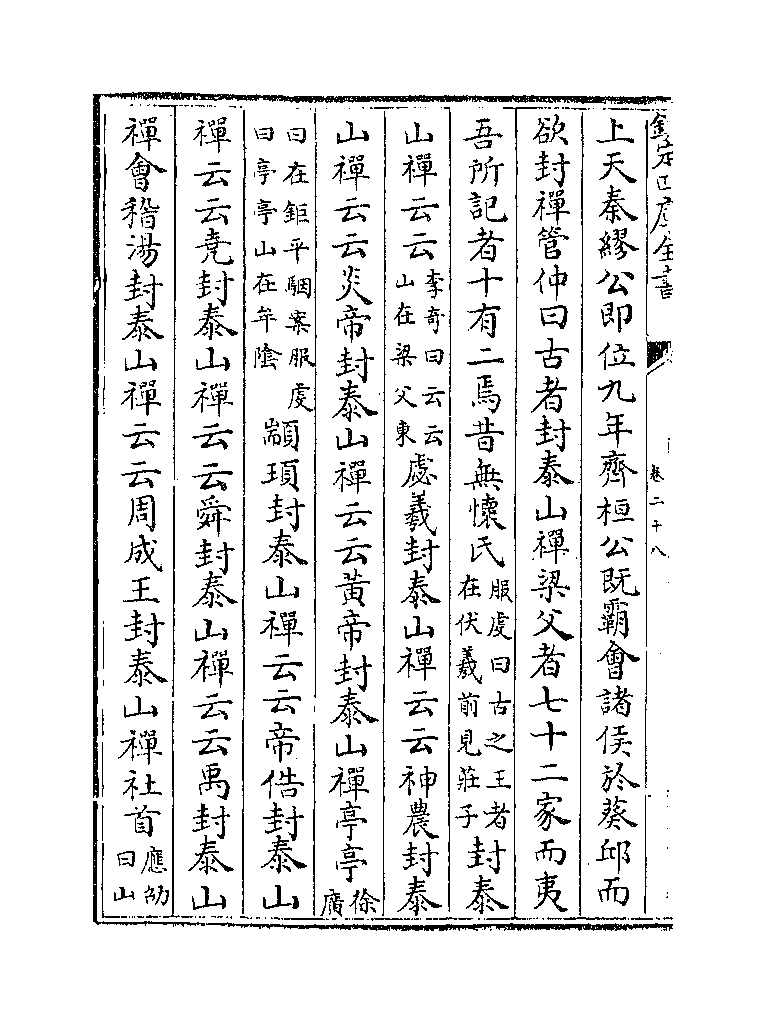 欽定四庫全書
卷二十八
上天秦繆公即位九年齊桓公既霸會諸侯於葵邱而
欲封禪管仲曰古者封泰山禪梁父者七十二家而夷
吾所記者十有二焉昔無懷氏服虔曰古之王者在伏羲前見莊子封泰
山禪云云李奇曰云云山在梁父東虙羲封泰山禪云云神農封泰
山禪云云炎帝封泰山禪云云黃帝封泰山禪亭亭徐廣
曰在鉅平駰案服虔曰亭亭山在牟陰顓頊封泰山禪云云帝俈封泰山
禪云云堯封泰山禪云云舜封泰山禪云云禹封泰山
禪會稽湯封泰山禪云云周成王封泰山禪社首應劭曰山